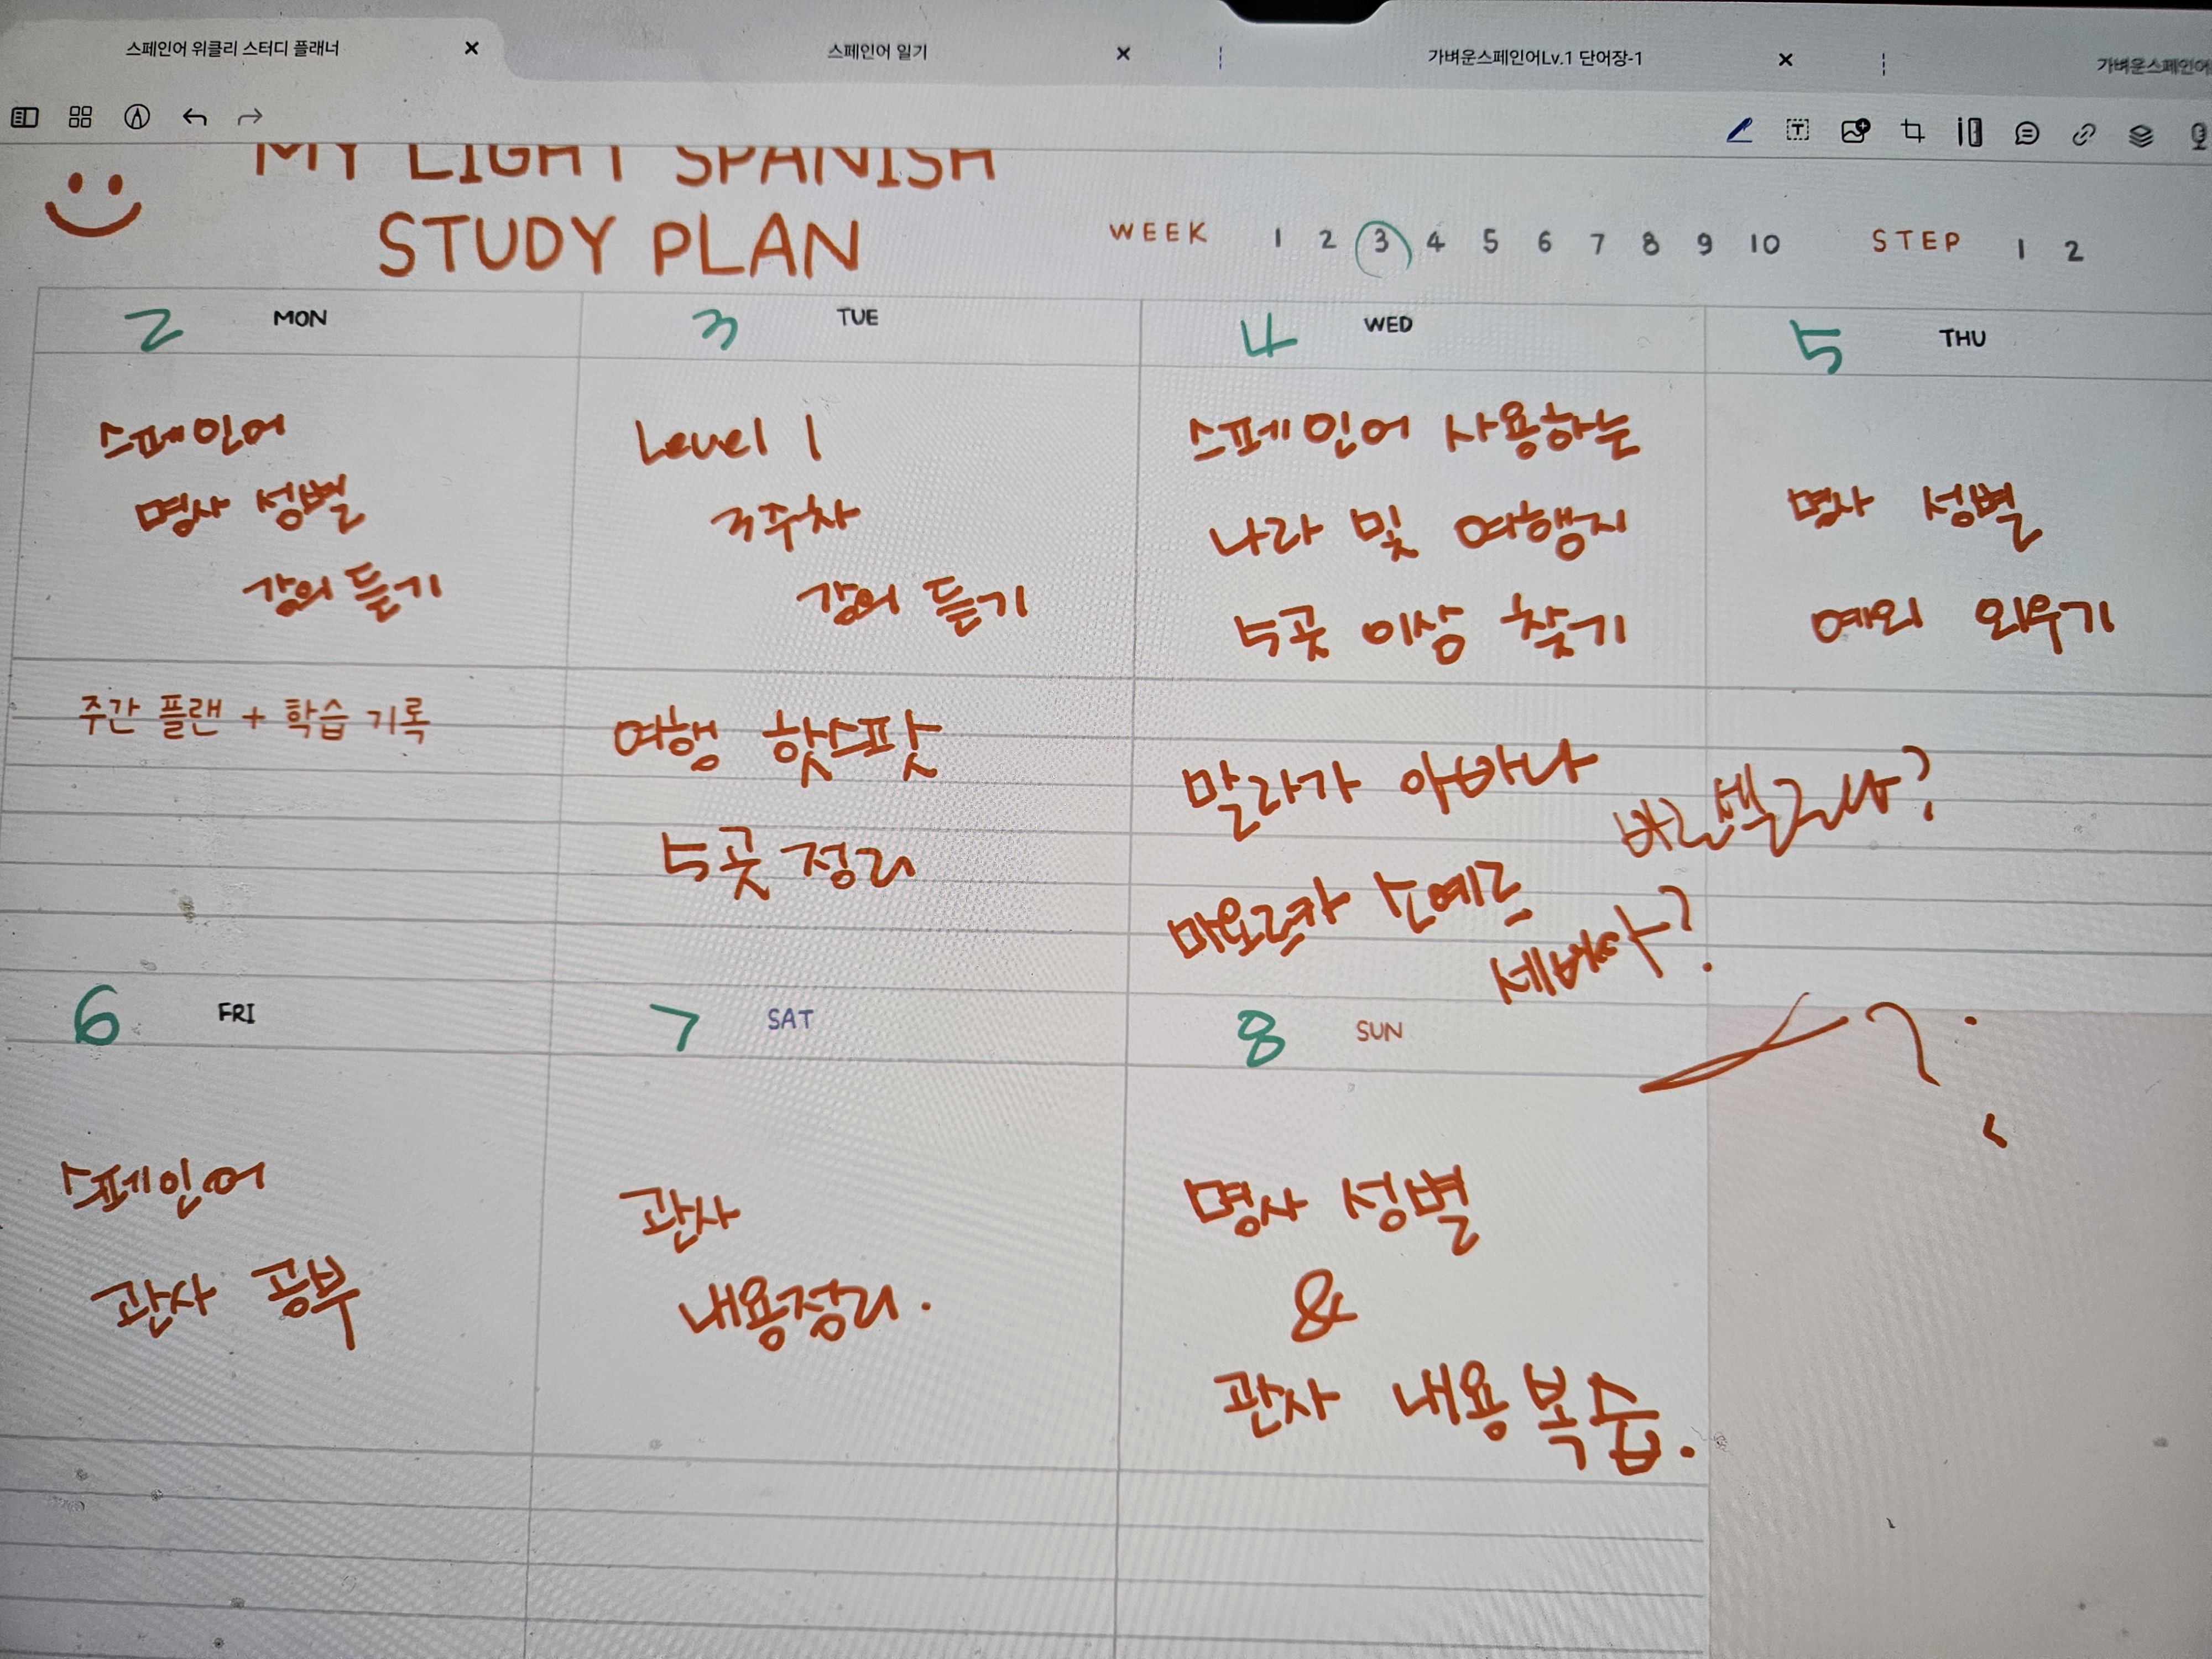 스페인어 위클리 스터디 플래너
스페인어 일기
가벼운스페인어Lv.1 단어장-1
가벼운스페인어
MY LIGHT SPANISH
STUDY PLAN
WEEK 1 2 3 4 5 6 7 8 9 10 STEP 1 2
2 MON
스페인어
명사 성별
강의 듣기
주간 플랜 + 학습 기록
3 TUE
Level 1
3주차
강의 듣기
여행 핫스팟
5곳 정리
4 WED
스페인어 사용하는
나라 및 여행지
5곳 이상 찾기
말라가 아바나
마요르카 소예르
5 THU
명사 성별
예외 외우기
6 FRI
스페인어
관사 공부
7 SAT
관사
내용정리.
8 SUN
명사 성별
&
관사 내용 복습.